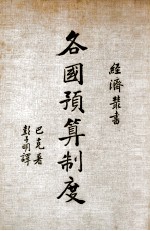 經濟叢書
各國預算制度
巴克著
彭子明譯